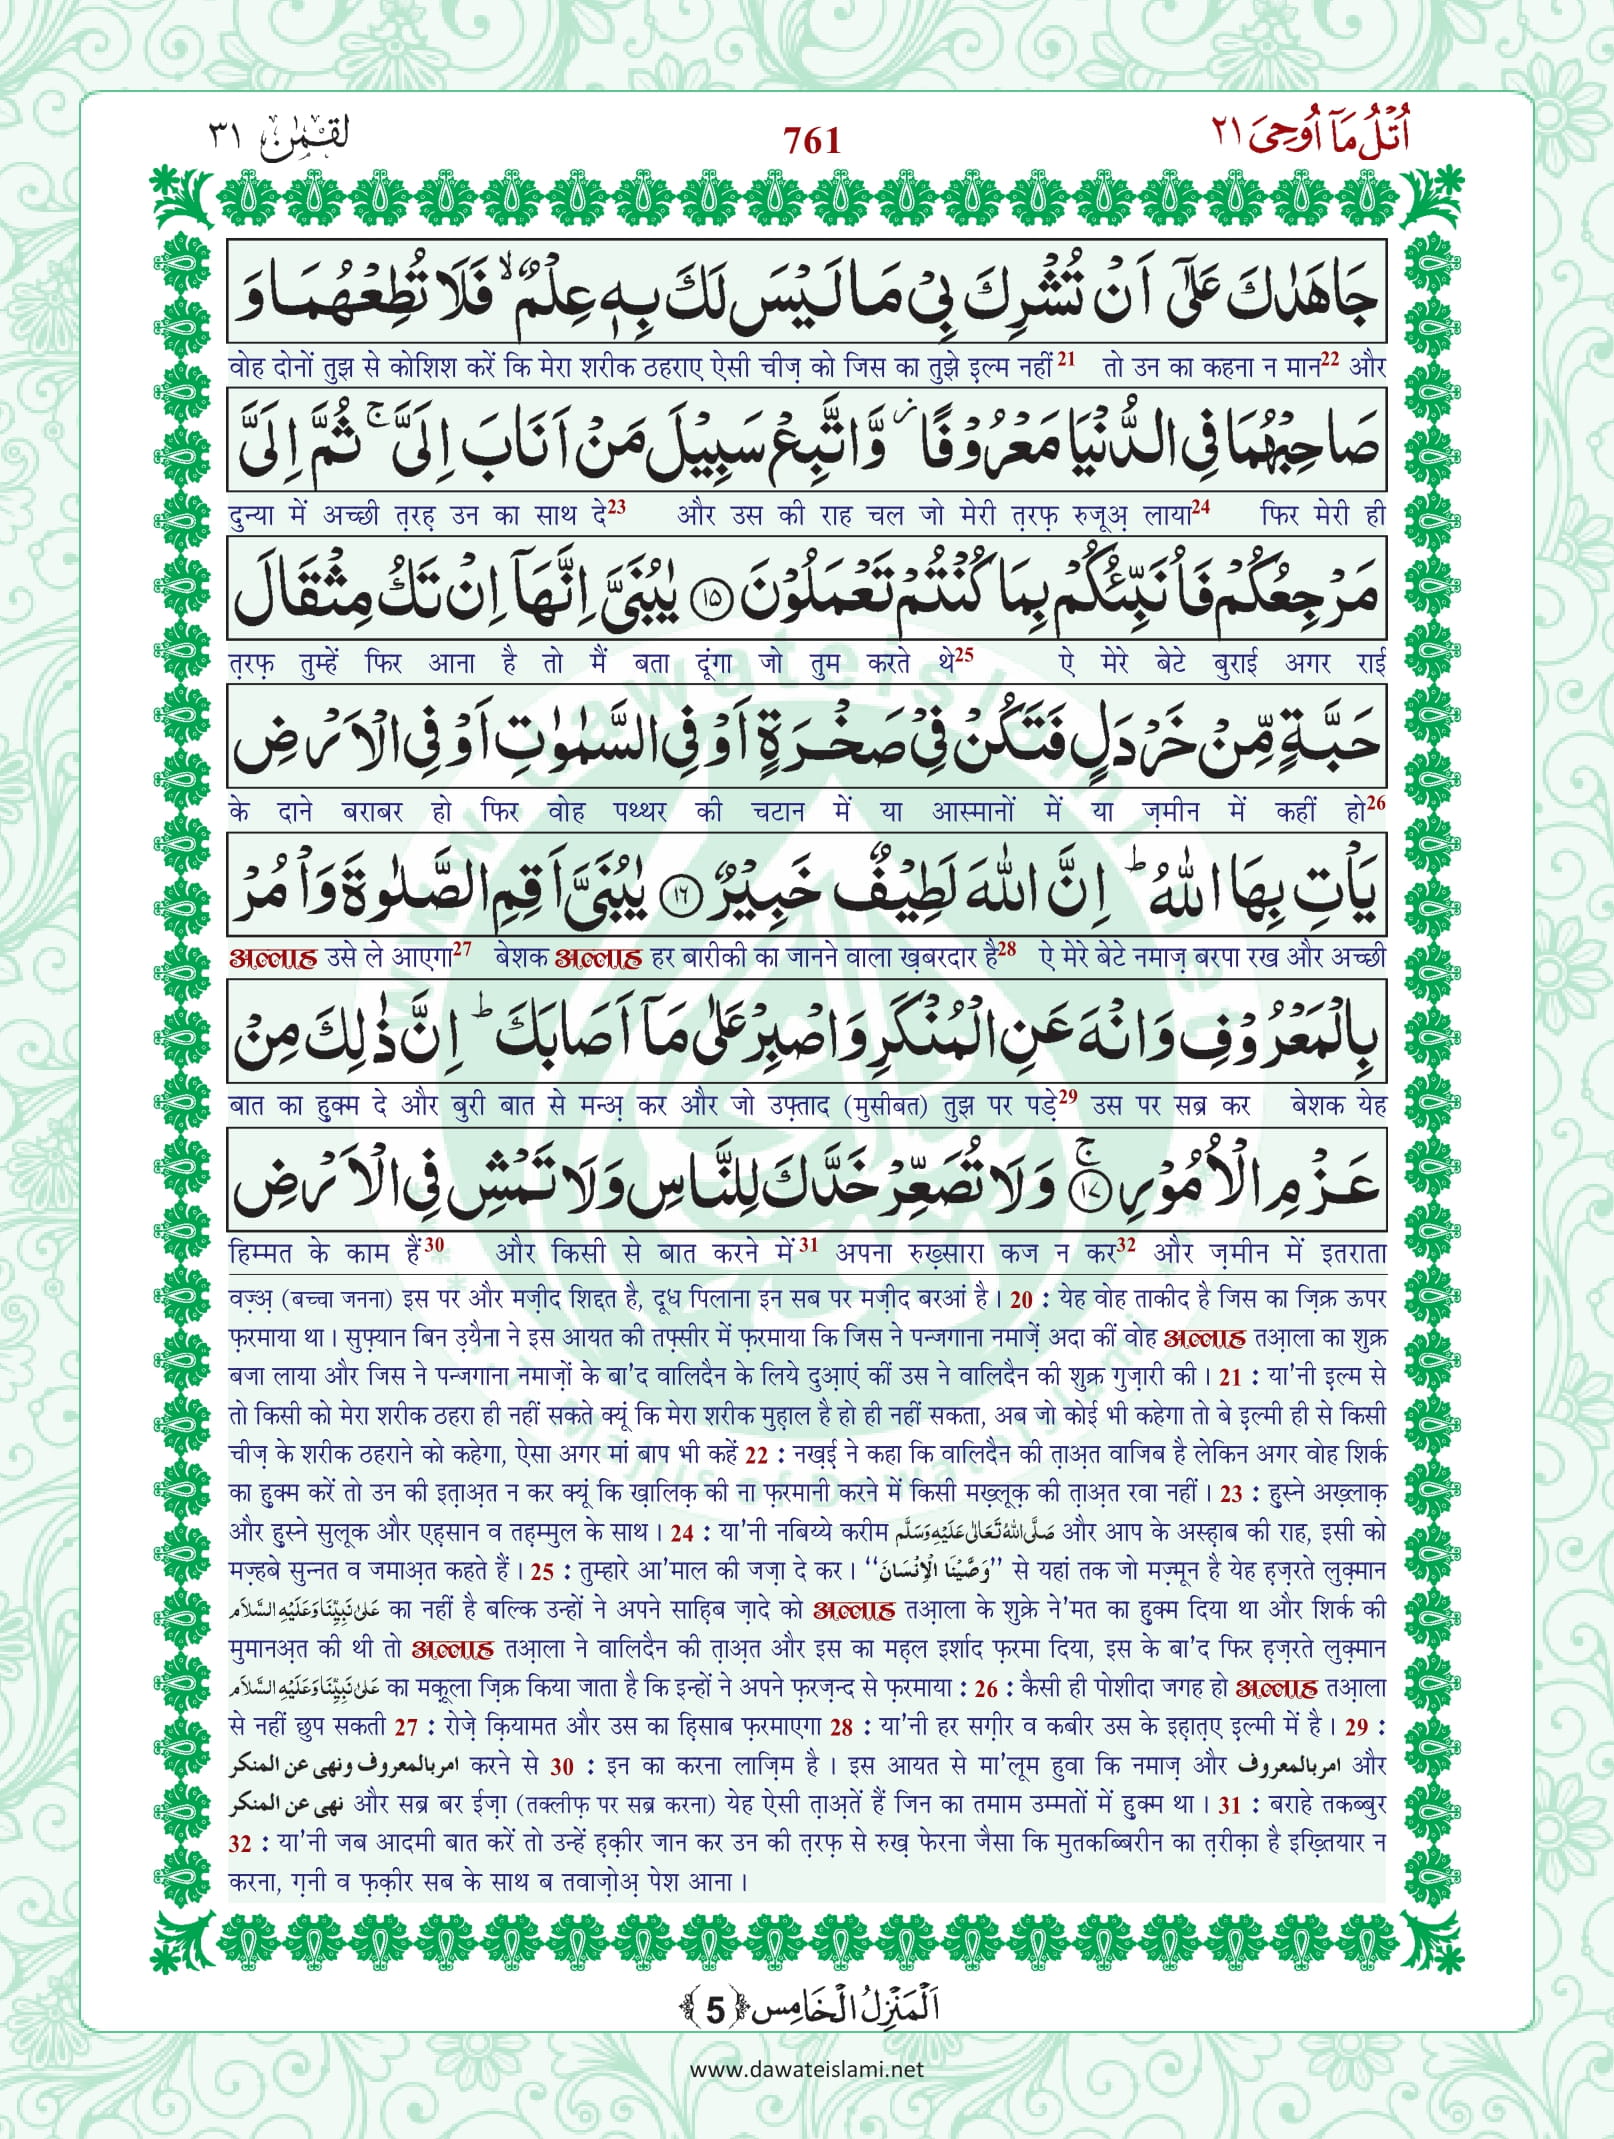 اُتْلُ مَآ اُوْحِیَ ٢١
761
لقمٰن ٣١
جَاهَدٰكَ عَلٰۤى اَنْ تُشْرِكَ بِیْ مَا لَیْسَ لَكَ بِهٖ عِلْمٌۙ فَلَا تُطِعْهُمَا وَ
वोह दोनों तुझ से कोशिश करें कि मेरा शरीक ठहराए ऐसी चीज़ को जिस का तुझे इल्म नहीं21 तो उन का कहना न मान22 और
صَاحِبْهُمَا فِی الدُّنْیَا مَعْرُوْفًا٘ وَّ اتَّبِعْ سَبِیْلَ مَنْ اَنَابَ اِلَیَّۚ ثُمَّ اِلَیَّ
दुन्या में अच्छी त़रह़ उन का साथ दे23 और उस की राह चल जो मेरी त़रफ़ रुजूअ़ लाया24 फिर मेरी ही
مَرْجِعُكُمْ فَاُنَبِّئُكُمْ بِمَا كُنْتُمْ تَعْمَلُوْنَ ١٥ یٰبُنَیَّ اِنَّهَاۤ اِنْ تَكُ مِثْقَالَ
त़रफ़ तुम्हें फिर आना है तो मैं बता दूंगा जो तुम करते थे25 ऐ मेरे बेटे बुराई अगर राई
حَبَّةٍ مِّنْ خَرْدَلٍ فَتَكُنْ فِیْ صَخْرَةٍ اَوْ فِی السَّمٰوٰتِ اَوْ فِی الْاَرْضِ
के दाने बराबर हो फिर वोह पथ्थर की चटान में या आस्मानों में या ज़मीन में कहीं हो26
یَاْتِ بِهَا اللّٰهُؕ اِنَّ اللّٰهَ لَطِیْفٌ خَبِیْرٌ ١٦ یٰبُنَیَّ اَقِمِ الصَّلٰوةَ وَاْمُرْ
अल्लाह उसे ले आएगा27 बेशक अल्लाह हर बारीकी का जानने वाला ख़बरदार है28 ऐ मेरे बेटे नमाज़ बरपा रख और अच्छी
بِالْمَعْرُوْفِ وَانْهَ عَنِ الْمُنْكَرِ وَاصْبِرْ عَلٰى مَاۤ اَصَابَكَؕ اِنَّ ذٰلِكَ مِنْ
बात का हुक्म दे और बुरी बात से मन्अ़ कर और जो उफ़्ताद (मुसीबत) तुझ पर पड़े29 उस पर सब्र कर बेशक येह
عَزْمِ الْاُمُوْرِۚ ١٧ وَلَا تُصَعِّرْ خَدَّكَ لِلنَّاسِ وَلَا تَمْشِ فِی الْاَرْضِ
हिम्मत के काम हैं30 और किसी से बात करने में31 अपना रुख़्सारा कज न कर32 और ज़मीन में इतराता
वज़्अ़ (बच्चा जनना) इस पर और मज़ीद शिद्दत है, दूध पिलाना इन सब पर मज़ीद बरआं है। 20 : येह वोह ताकीद है जिस का ज़िक्र ऊपर
फ़रमाया था। सुफ़्यान बिन उ़यैना ने इस आयत की तफ़्सीर में फ़रमाया कि जिस ने पन्जगाना नमाज़ें अदा कीं वोह अल्लाह तआ़ला का शुक्र
बजा लाया और जिस ने पन्जगाना नमाज़ों के बा'द वालिदैन के लिये दुआ़एं कीं उस ने वालिदैन की शुक्र गुज़ारी की। 21 : या'नी इ़ल्म से
तो किसी को मेरा शरीक ठहरा ही नहीं सकते क्यूं कि मेरा शरीक मुह़ाल है हो ही नहीं सकता, अब जो कोई भी कहेगा तो बे इ़ल्मी ही से किसी
चीज़ के शरीक ठहराने को कहेगा, ऐसा अगर मां बाप भी कहें 22 : नख़ई ने कहा कि वालिदैन की त़ाअ़त वाजिब है लेकिन अगर वोह शिर्क
का हुक्म करें तो उन की इत़ाअ़त न कर क्यूं कि ख़ालिक़ की ना फ़रमानी करने में किसी मख़्लूक़ की त़ाअ़त रवा नहीं। 23 : हुस्ने अख़्लाक़
और हुस्ने सुलूक और एह़सान व तह़म्मुल के साथ। 24 : या'नी नबिय्ये करीम صَلَّى اللّٰهُ تَعَالٰى عَلَيْهِ وَسَلَّم और आप के अस्ह़ाब की राह, इसी को
मज़्हबे सुन्नत व जमाअ़त कहते हैं। 25 : तुम्हारे आ'माल की जज़ा दे कर। ‘‘وَصَّيْنَا الْاِنْسَانَ’’ से यहां तक जो मज़्मून है येह ह़ज़रते लुक़्मान
عَلٰى نَبِيِّنَا وَعَلَيْهِ السَّلَام का नहीं है बल्कि उन्हों ने अपने साह़िब ज़ादे को अल्लाह तआ़ला के शुक्रे ने'मत का हुक्म दिया था और शिर्क की
मुमानअ़त की थी तो अल्लाह तआ़ला ने वालिदैन की त़ाअ़त और इस का मह़ल इर्शाद फ़रमा दिया, इस के बा'द फिर ह़ज़रते लुक़्मान
عَلٰى نَبِيِّنَا وَعَلَيْهِ السَّلَام का मक़ूला ज़िक्र किया जाता है कि इन्हों ने अपने फ़रज़न्द से फ़रमाया : 26 : कैसी ही पोशीदा जगह हो अल्लाह तआ़ला
से नहीं छुप सकती 27 : रोज़े क़ियामत और उस का ह़िसाब फ़रमाएगा 28 : या'नी हर सग़ीर व कबीर उस के इह़ात़ए इ़ल्मी में है। 29 :
امر بالمعروف و نهى عن المنكر करने से 30 : इन का करना लाज़िम है। इस आयत से मा'लूम हुवा कि नमाज़ और امر بالمعروف और
نهى عن المنكر और सब्र बर ईज़ा (तक्लीफ़ पर सब्र करना) येह ऐसी त़ाअ़तें हैं जिन का तमाम उम्मतों में हुक्म था। 31 : बराहे तकब्बुर
32 : या'नी जब आदमी बात करें तो उन्हें ह़क़ीर जान कर उन की त़रफ़ से रुख़ फेरना जैसा कि मुतकब्बिरीन का त़रीक़ा है इख़्तियार न
करना, ग़नी व फ़क़ीर सब के साथ ब तवाज़ोअ़ पेश आना।
اَلْمَنْزِلُ الْخَامِس ﴿5﴾
www.dawateislami.net